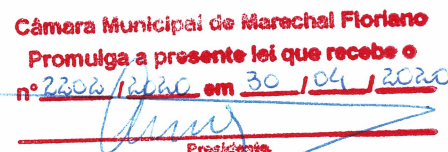 Câmara Municipal de Marechal Floriano
Promulga a presente lei que recebe o
nº 2202 / 2020 em 30 / 04 / 2020
Presidente